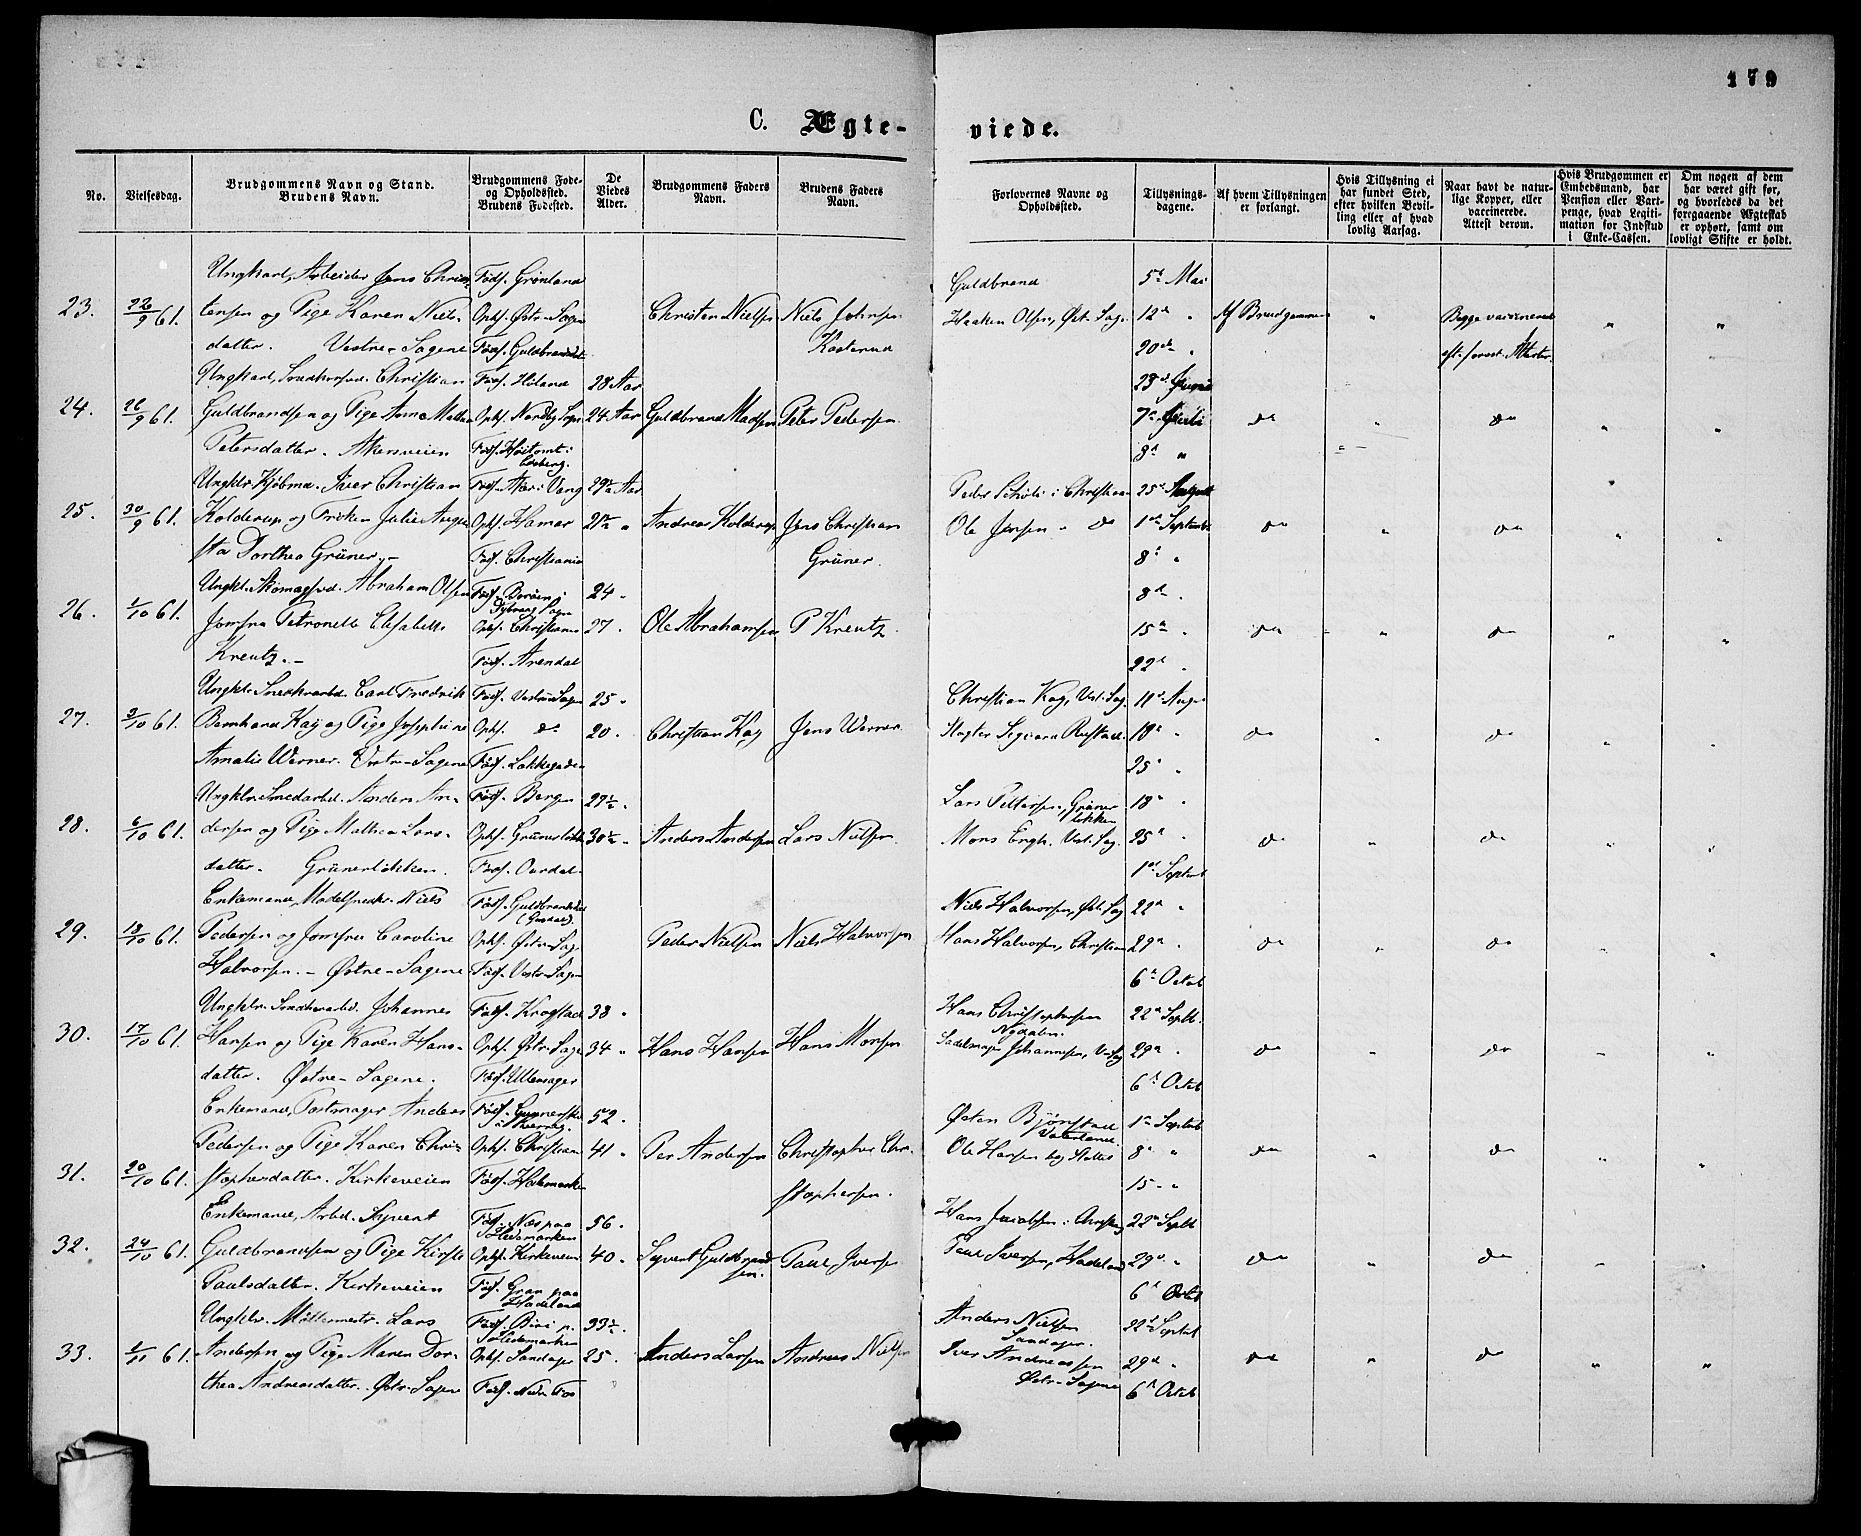 179
C. Ægte-
viede.
No.
Vielsesdag.
Brudgommens Navn og Stand.
Brudens Navn.
Brudgommens Føde-
og Opholdssted.
Brudens Fødested.
De
Viedes
Alder.
Brudgommens Faders
Navn.
Brudens Faders
Navn.
Forlovernes Navne og
Opholdssted.
Tillysnings-
dagene.
Af hvem Tillysningen
er forlangt.
Hvis Tillysning ei
har fundet Sted,
efter hvilken Bevil-
ling eller af hvad
lovlig Aarsag.
Naar havt de natur-
lige Kopper, eller
vaccinerede.
Attest derom.
Hvis Brudgommen er
Embedsmand, har
Pension eller Vart-
penge, hvad Legiti-
mation for Indskud
i Enke-Cassen.
Om nogen af dem
har været gift før,
og hvorledes da det
foregaaende Ægteskab
er ophørt, samt om
lovligt Skifte er holdt.
23.
22/9 61.
Ungkarl, Arbeider Jens Chris-
tensen og Pige Karen Niels-
datter. Vestre-Sagene
Føds. Grønland
Ophs. Østr-Sagen
Christen Nielsen
Niels Johnsen
Guldbrand
Haaken Olsen, Øst. Sag.
5d Mai
12d "
20de "
Af Brudgommen
"
Begge vaccinered
"
"
24.
26/9 61.
Ungkarl, Snedkersvd. Christian
Guldbrandsen og Pige Anne Mathea
Petersdatter. Akersveien
Føds. Høland
Ophs. Nordby Sogn
28 Aar
24 Aar
Guldbrand Madsen
Peter Pedersen
7d
8d "
do
"
do
"
"
25.
30/9 61.
Ungklr. Kjøbmd. Iver Christian
Kolderup og Frøken Julie Augu-
sta Dorthea Grüner.-
Ophs. Hamar
Føds. Christiania
29½ Aar
21½ "
Andreas Kolderup
Jens Christian
Grüner.
Ole Jensen - do
1d Septemb
8d "
do
"
do
"
"
26.
1/10 61.
Ungkl. Skomagsvd. Abraham Olsen
Jomfru Petronelle Elisabeth
Kreutz.-
Ophs. Christiania
Føds. Arendal
24 "
27 "
Ole Abrahamsen
P Kreutz.
8d "
15d "
22d "
do
"
do
"
"
27.
3/10 61.
Ungklr. Snedkerarbd. Carl Fredrik
Bernhard Kay og Pige Josephine
Amalie Werner. Vestre-Sagene
Føds. Vestre Sagen
Ophs. do
Føds. Lakkegaden
25 "
20 "
Christian Kay
Jens Werner.
Christian Kay, Vest. Sag.
Slagter Sigvard Rustad.
11d Augu
18d "
25d "
do
"
do
"
"
28.
6/10 61.
Ungklr. Smedarbd. Anders An-
dersen og Pige Mathea Lars-
datter. Grünerløkken.
Føds. Bergen
Ophs. Grünerløkk
Føds. Ourdal
27½ "
30½ "
Anders Andersen
Lars Nielsen.
Lars Pettersen, Grüner
løkken
Mons Engh. Vest. Sag.
18d "
25d "
1d Septemb
do
"
do
"
"
29.
13/10 61.
Enkemand, Modelsnedkr. Niels
Pedersen og Jomfru Caroline
Halvorsen. - Østre-Sagene
Føds. Guldbrandsdal
(Gusdal)
Ophs. Østre-Sag
Føds. Vestr-Sagen
Peder Nielsen
Niels Halvorsen
Niels Halvorsen, Øst. Sag
Hans Halvorsen, Christian
22d "
29d "
6d Octob
do
"
do
"
"
30.
17/10 61.
Ungklr. Snedkerarbd. Johannes
Hansen og Pige Karen Hans-
datter. Østre-Sagene.
Føds. Krogstad
Ophs. Østr-Sage
Føds. Ullensager
38 "
34 "
Hans Hansen
Hans Monsen
Hans Christophersen
Nydalen.
Sadelmager Johannesen, V. Sag
22d Septb.
29d "
6d Octob
do
"
do
"
"
31.
20/10 61.
Enkemand, Postmager Anders
Pedersen og Pige Karen Chri-
stophersdatter. Kirkeveien
Ophs. Christian
Føds. Hedemarken
52 "
41 "
Per Andersen
Christopher Chri-
stophersen.
Østen Bjørnstad
Vaterland.
1d Septb
8d "
15 - "
do
"
do
"
"
32.
24/10 61.
Enkemand, Arbd. Syvert
Guldbrandsen og Pige Kirsti
Paulsdatter. Kirkeveien
Føds. Næs paa
Hedemarken
Ophs. Kirkeveien
Føds. Gran paa
Hadeland
56 "
40 "
Syvert Guldbrand-
sen.
Paul Iversen
Hans Jacobsen i Christian
Paul Iversen, Hadeland
22d Septb
29d "
6d Octob
do
"
do
"
"
33.
1/11 61.
Ungklr. Møllermestr. Lars
Andersen og Pige Maren Dor-
thea Andreasdatter. Østr-Sagene
Føds. Biri p.
Hedemarken
Ophs. Sandager
33½ "
25 "
Anders Larsen
Andreas Nielsen
Anders Nielsen
Sandager.
Iver Andreassen
Østr-Sagene
22d Septb
29d "
6d Octob
do
"
do
"
"